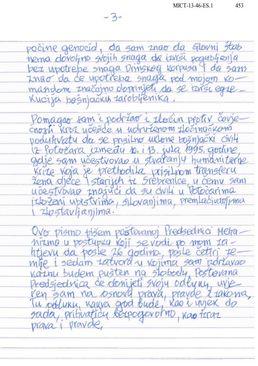 MICT-13-46-ES.1 453
- 3 -
počine genocid, da sam znao da Glavni štab
nema dovoljno svojih snaga da izvrši pogubljenja
bez upotrebe snaga Drinskog korpusa i da sam
znao da će upotreba snaga pod mojom ko-
mandom značajno doprinjeti da se izvrši egze-
kucija bošnjačkih zarobljenika.
Pomagao sam i podržao i zločin protiv čovje-
čnosti kroz učešće u udruženom zločinačkom
poduhvatu da se prisilno uklone bošnjački civili
iz Potočara između 10. i 13. jula 1995. godine,
gdje sam učestvovao u stvaranju humanitarne
krize koja je prethodila prisilnom transferu
žena djece i starijih iz Srebrenice, u čemu sam
učestvovao znajući da su civili u Potočarima
izloženi ubistvima, silovanjima, premlaćivanjima
i zlostavljanjima.
Ovo pismo pišem poštovanoj Predsjednici Meha-
nizma u postupku koji se vodi po mom za-
htjevu da posle 26 godina, posle četiri ze-
mlje i sedam zatvora u kojima sam izdržavao
kaznu budem pušten na slobodu. Poštovana
Predsjednica će donijeti svoju odluku, uvje-
ren sam na osnovu prava, pravde i zakona.
Tu odluku, kakva god bude, kao i uvjek do
sada, prihvatiću bezpogovorno, kao izraz
prava i pravde,